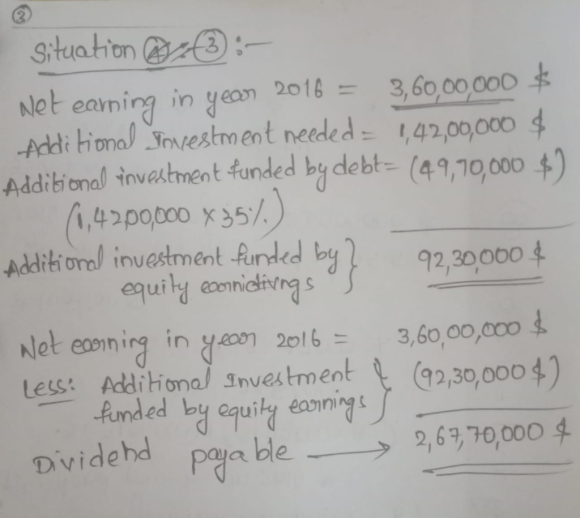 3
Situation 3 :-
Net earning in year 2016 = 3,60,00,000 $
Additional Investment needed = 1,42,00,000 $
Additional investment funded by debt = (49,70,000 $)
(1,4200,000 x 35%)
Additional investment funded by } 92,30,000 $
equity
Net earning in year 2016 = 3,60,00,000 $
Less: Additional Investment } (92,30,000 $)
funded by equity earnings
Dividend payable → 2,67,70,000 $